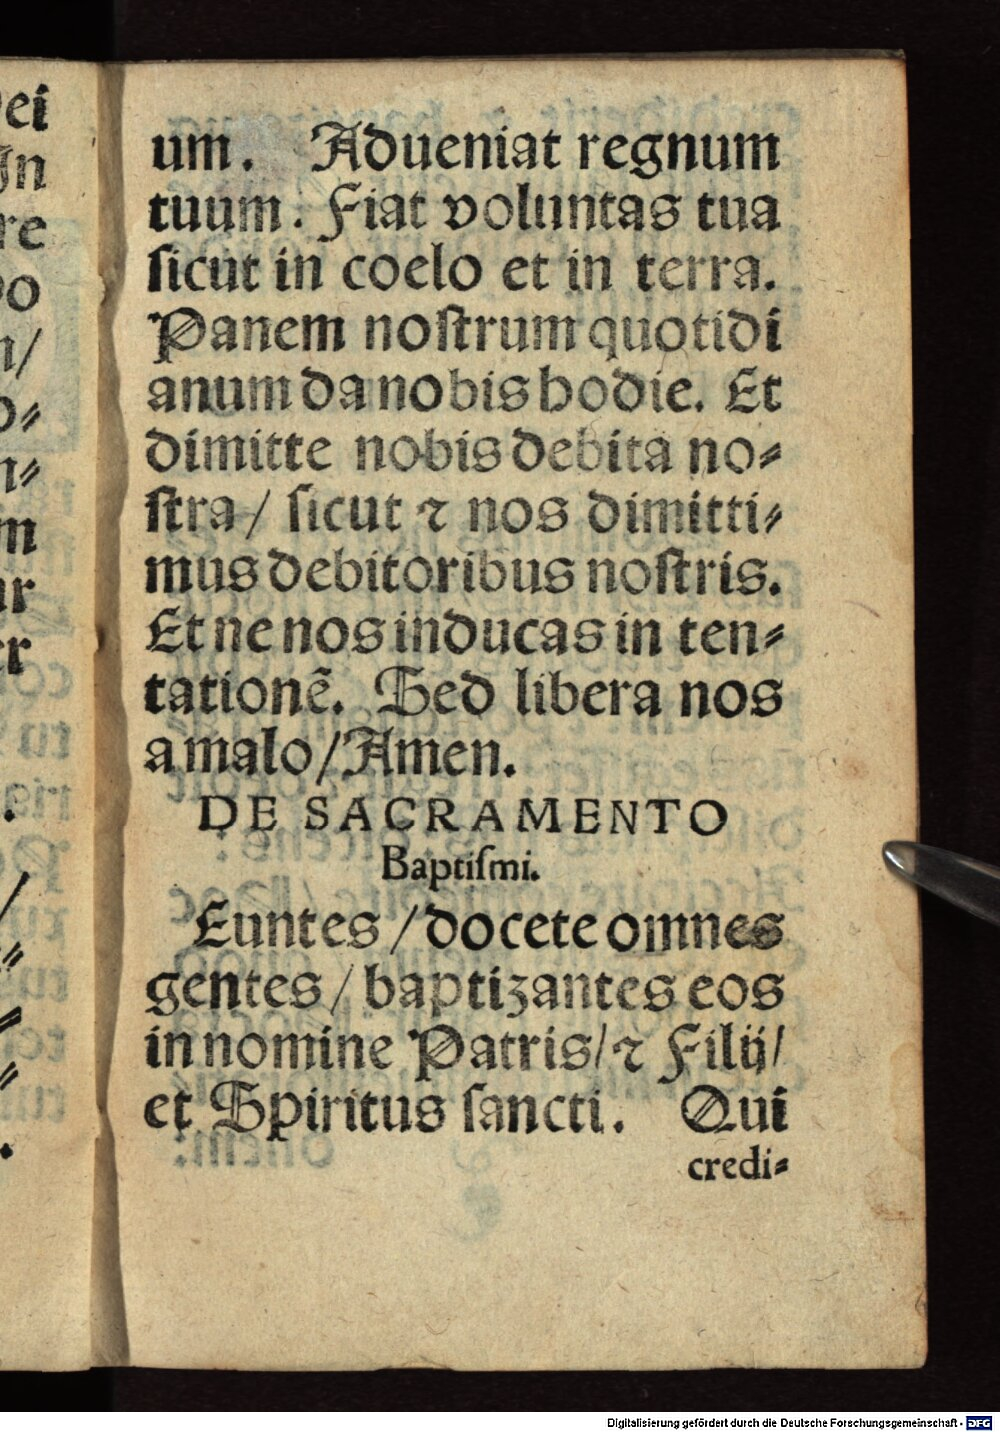 ei
In
re
um. Adueniat regnum
tuum. Fiat voluntas tua
ſicut in coelo et in terra.
Panem noſtrum quotidi
anum da nobis hodie. Et
dimitte nobis debita no⸗
ſtra/ ſicut ⁊ nos dimitti⸗
mus debitoribus noſtris.
Et ne nos inducas in ten⸗
tationẽ. Sed libera nos
a malo/ Amen.
DE SACRAMENTO
Baptiſmi.
Euntes / docete omnes
gentes / baptizantes eos
in nomine Patris/ ⁊ Filij/
et Spiritus ſancti. Qui
credi⸗
Digitalisierung gefördert durch die Deutsche Forschungsgemeinschaft - DFG